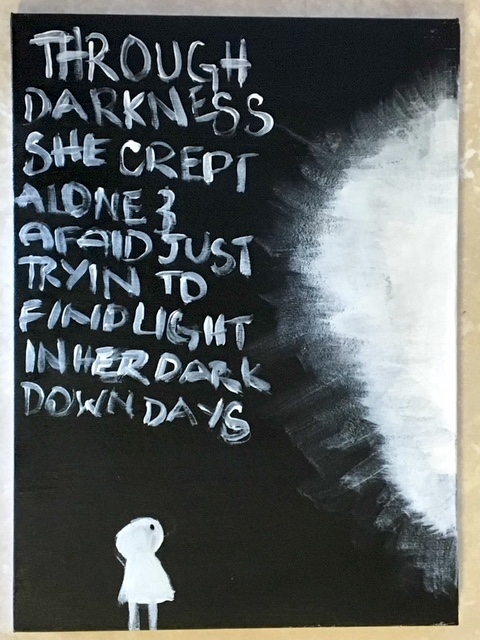 THROUGH
DARKNESS
SHE CREPT
ALONE &
AFAID JUST
TRYIN TO
FIND LIGHT
IN HER DARK
DOWN DAYS